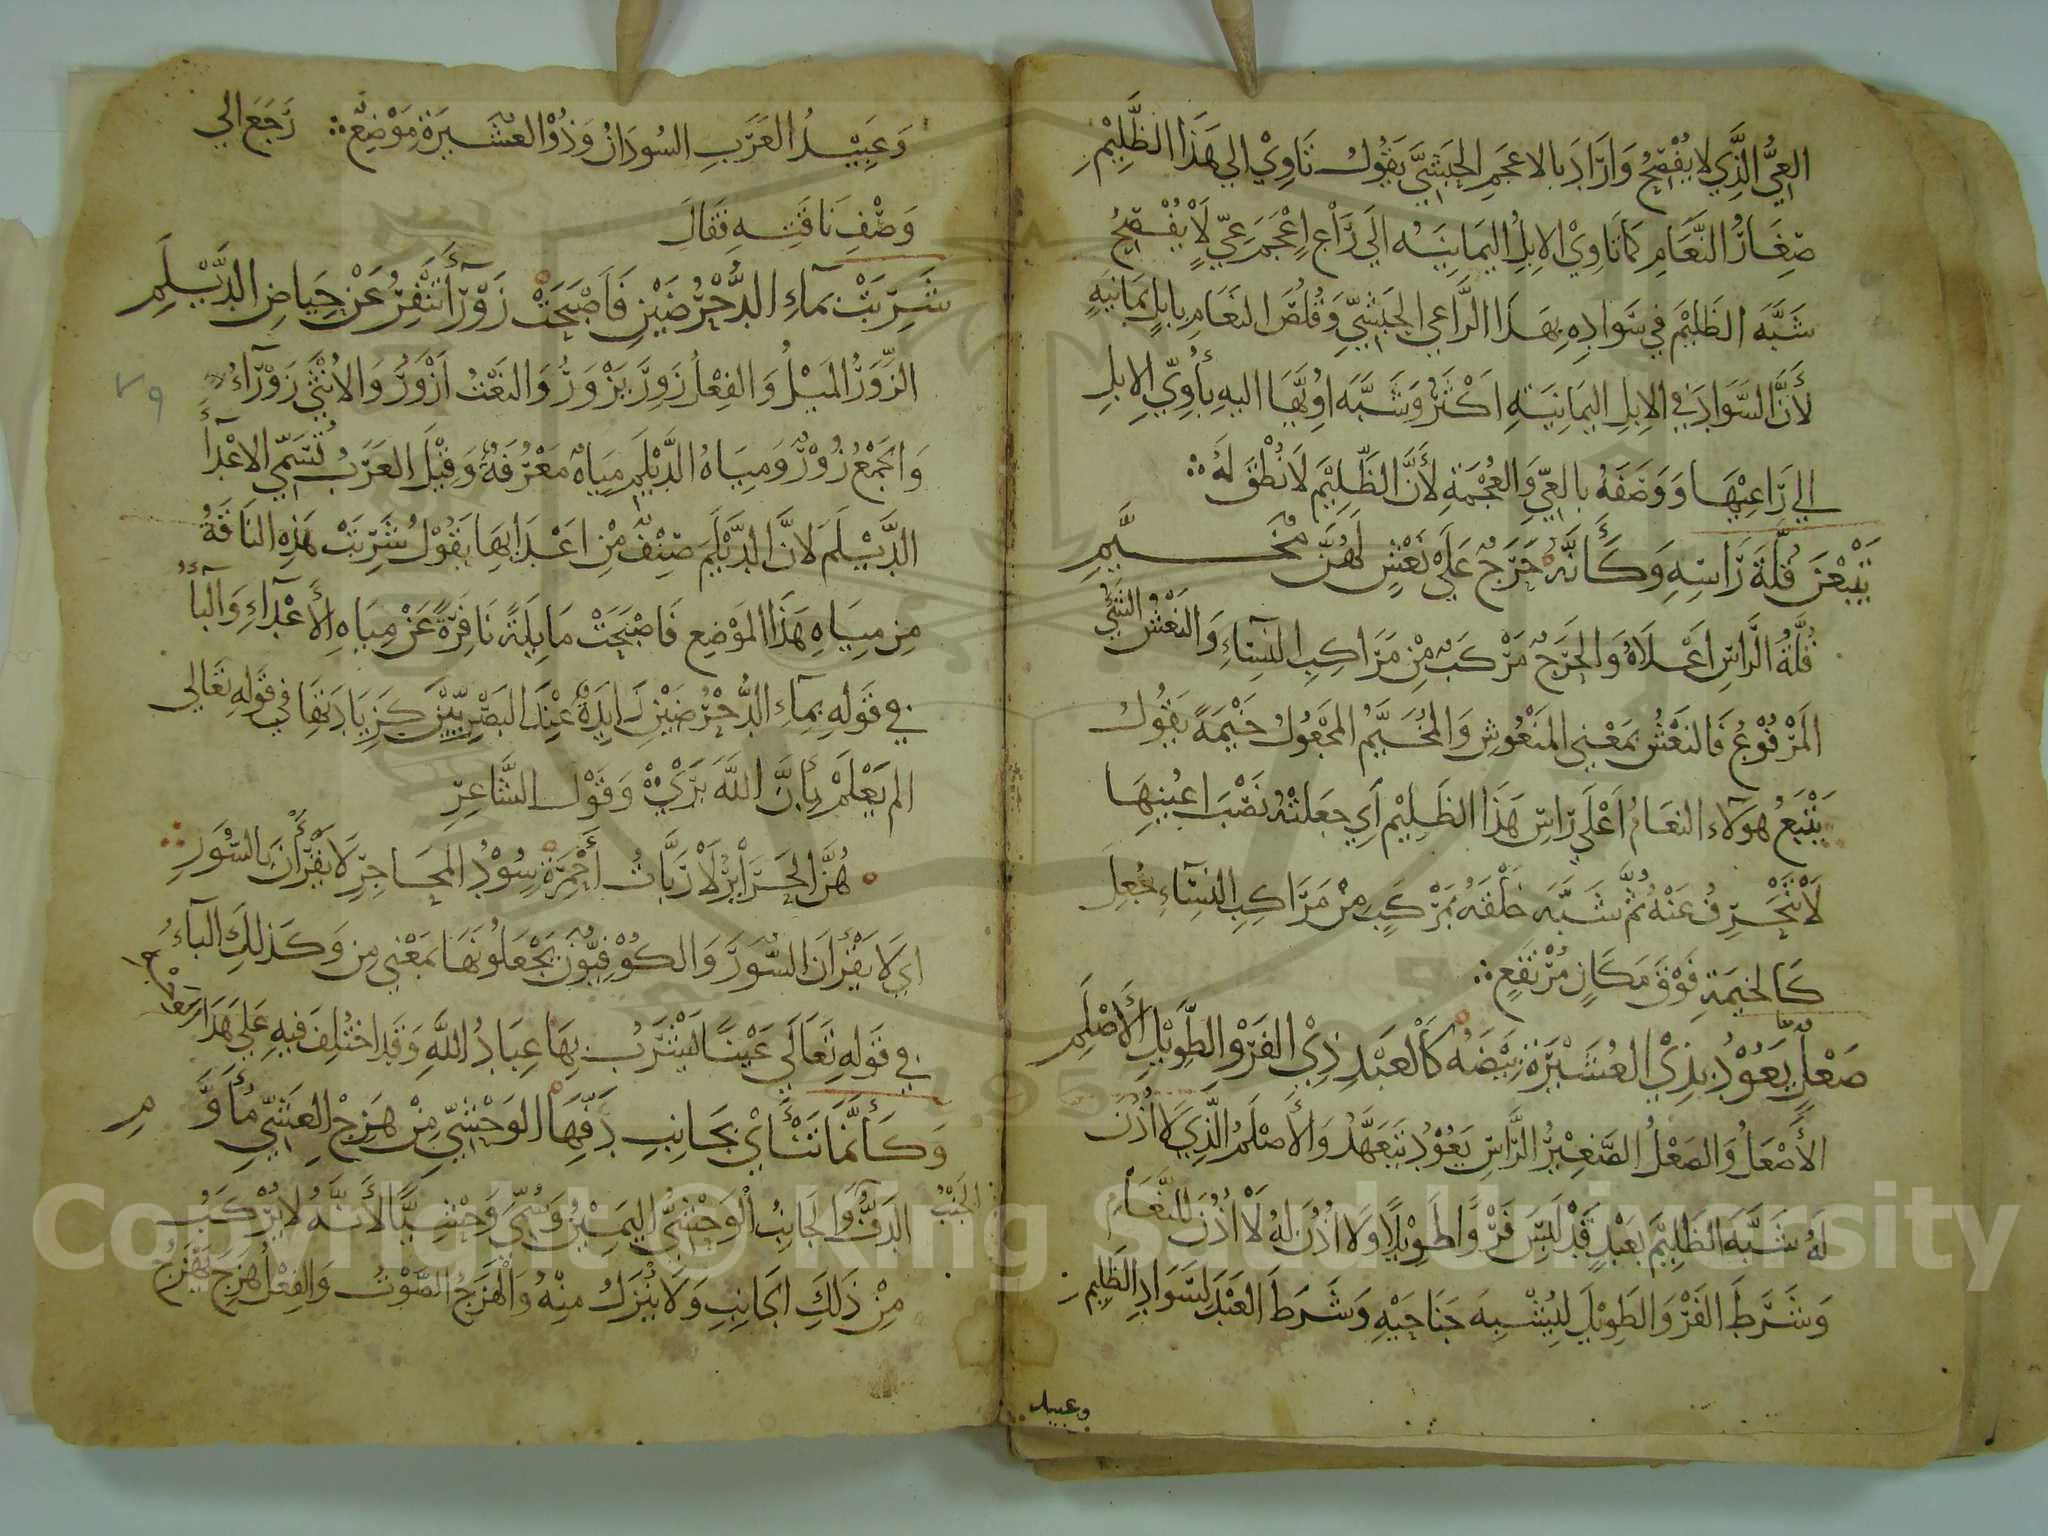 العِيُّ الَّذِي لا يُفْصِحُ وَارَادَ بالاعجَمِ الحَبَشِيَّ يَقُولُ تَاوِيْ الي هَذَا الظَّلِيْمِ
صِغَارُ النَّعَامِ كَمَا تَاوِيْ الاِبِلُ اليَمَانِيَه الَي رَاعٍ اعْجَمَ عِيٍّ لَا يُفْصِحُ
شَبَّهَ الظَلِيْمَ في سَوَادِهِ بِهَذَا الرَّاعِي الحَبَشِيِّ وَقُلُصَ النَعَامِ بِابلٍ يَمَانِيَهٍ
لأَنَّ السَّوَادَ فِي الاِبِلِ اليَمانِيَةِ اَكْثَرُ وَشَبَّهَ اوُيَّهَا اليهِ بأُوِيِّ الاِبلِ
الي رَاعِيْهَا وَوَصَفَهُ بالعِيِّ وَالعُجْمَةِ لأَنَّ الظَّلِيْمَ لَا نُطْقَ لَهُ
يَتْبَعْنَ قُلَّةَ رَاسِهِ وَكَأَنَّهُ حَرَجٌ عَلَي نَعْشٍ لَهُنَّ مُخَيَّمِ
قُلَّةُ الرَّاسِ اَعْلَاهُ وَالحَرَجُ مَرْكَبٌ مِنْ مَرَاكِبِ النِسَاءِ وَالنَعْشُ الشَيُّ
المَرْفُوْعُ فَالنَعْشُ بمَعْنِي المَنْعُوشِ وَالمُخَيَّمُ المَجْعُولُ خَيْمَةً يَقُولُ
يَتْبَعُ هَولآءِ النعَامُ اَعْلَي رَاسِ هَذَا الظَلِيْمِ اَي جعَلتْهُ نَصْبَ اعيُنِهَا
لَا تَنْحَرِفُ عَنْهُ ثُمَّ شَبَّهَ خَلْقَهُ بمَرْكَبٍ مِنْ مَرَاكِبِ النِسَاءِ جُعِلَ
كَالخيمَةِ فَوْقَ مَكَانٍ مُرْتَفِعٍ
صَعْلٍ يَعُوْدُ بِذِيْ العُشَيْرَةِ بَيْضَهُ كَالعَبْدِ ذِي الفَرْوِ الطَّوِيْلِ الأَصْلَمِ
الأَصْعَلُ وَالصَعْلُ الصَّغِيْرُ الرَّاسِ يَعُوْدُ يَتَعَهَّدُ وَالأَصْلَمُ الَّذِي لَا اُذُنَ
لَهُ شَبَّهَ الظَلِيْمَ بعَبْدٍ قَدْ لَبِسَ فَرْوًا طَوِيْلًا وَلَا اُذُنَ لَهُ لَا اُذُنَ لِلنَّعَامِ
وَشَرَطَ الفَرْوَ الطَوِيْلَ لِيُشْبِهَ جَنَاحَيْهِ وَشَرَطَ العَبْدَ لِسَوَادِ الظَلِيمِ
وعبيد
وَعَبِيْدُ العَرَبِ السُودَانُ وَذُوْ العُشَيرَةِ مَوْضِعٌ رَجَعَ الي
وَصْفِ نَاقَتِهِ فَقَالَ
شَرِبَتْ بمآءِ الدُّحْرُضَيْنِ فَاَصْبَحَتْ زَوْرَآءَ تَنْفِرُ عَنْ حِيَاضِ الدَّيْلَمِ
الزَّوَرُ المَيْلُ وَالفِعْلُ زَوِرَ يَزْوَرُ وَالنَعْتُ اَزْوَرُ وَالاُنْثَي زَوْرَآءُ
٧٩
وَالجَمْعُ زُوْرٌ وَمِيَاهُ الدَّيْلَمِ مِيَاهٌ مَعْرُفَةٌ وَقِيْلَ العَرَبُ تُسَمِّي الاعْدَآءَ
الدَّيْلَمَ لانَّ الدَّيْلَمَ صِنْفٌ مِنِ اَعْدَائِهَا يَقُوْلُ شَرِبَتْ هَذِهِ النَاقَةُ
مِن مِيَاهِ هَذَا المَوْضِعِ فَاَصْبَحَتْ مَايِلَةً نَافِرَةً عَنْ مِيَاهِ الأَعْدَآءِ وَالبآءُ
في قَوْلِهِ بمآءِ الدُّحْرُضَيْنِ زَايِدَةٌ عِنْدَ البَصْرِيِّيْنَ كَزِيَادَتِهَا في قَولِهِ تَعَالي
الم يَعْلَمْ بِأَنَّ اللَّهَ يَرَيْ وَقَوْل الشَّاعِرِ
هُنَّ الحَرَائِرُ لَا رَبَّاتُ أَحْمِرَةٍ سُوْدُ المَحَاجِرِ لَا يَقْرَأْنَ بالسُّوَرِ
اي لَا يَقْرَأنَ السُّوَرَ وَالكُوْفِيُّونَ يَجْعَلُونَهَا بمَعْنَي مِن وَكَذلِكَ البآءُ
في قَوْلِهِ تَعَالَي عَيْنًا يَشْرَبُ بِهَا عِبَادُ اللَّهِ وَقَدِ اخْتُلِفَ فِيهِ عَلَي هَذَا
وَكَأَنَّمَا تَنْأَيْ بجَانِبِ دَفِّهَا الوَحْشِيِّ مِنْ هَزِجِ العَشِيِّ مُأَوَّمِ
الدَفُّ الجَنْبُ وَالجَانِبُ الوَحْشِيُّ اليَمِيْنُ وَسُمِّيَ وَحْشِيًّا لأَنَّهُ لَا يُرْكَبُ
مِنْ ذَلِكَ الجَانِبِ وَلَا يُنْزَلُ مِنْهُ وَالهَزَجُ الصَّوْتُ وَالفِعْلُ هَزِجَ يَهْزَجُ
Copyright © King Saud University
1957